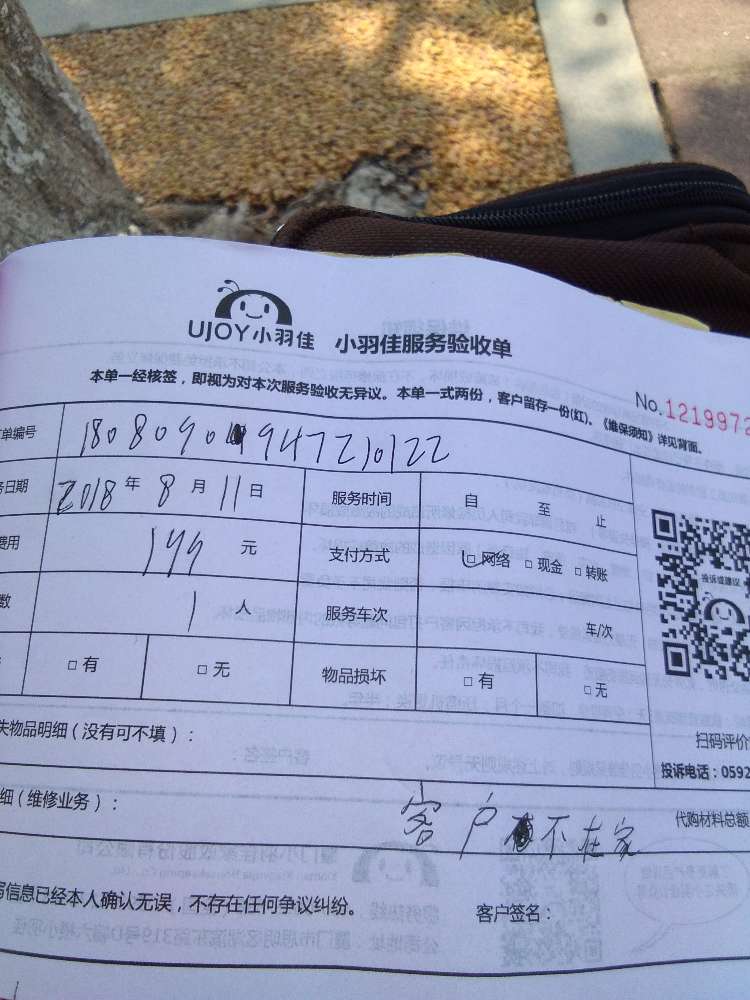 UJOY小羽佳 小羽佳服务验收单
No.1219972
本单一经核签，即视为对本次服务验收无异议。本单一式两份，客户留存一份(红)。《维保须知》详见背面。
单编号 18080901947210122
日期 2018年8月11日 服务时间 自 至 止
费用 199元 支付方式 □网络 □现金 □转账
数 1人 服务车次 车/次
□有 □无 物品损坏 □有 □无
投诉或建议
失物品明细（没有可不填）：
扫码评价
投诉电话：0592
细（维修业务）：
客户不在家
代购材料总额
写信息已经本人确认无误，不存在任何争议纠纷。 客户签名：